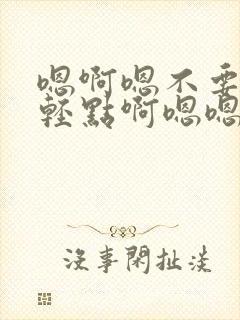 嗯啊嗯不要
輕點啊嗯嗯
沒事閑扯淡